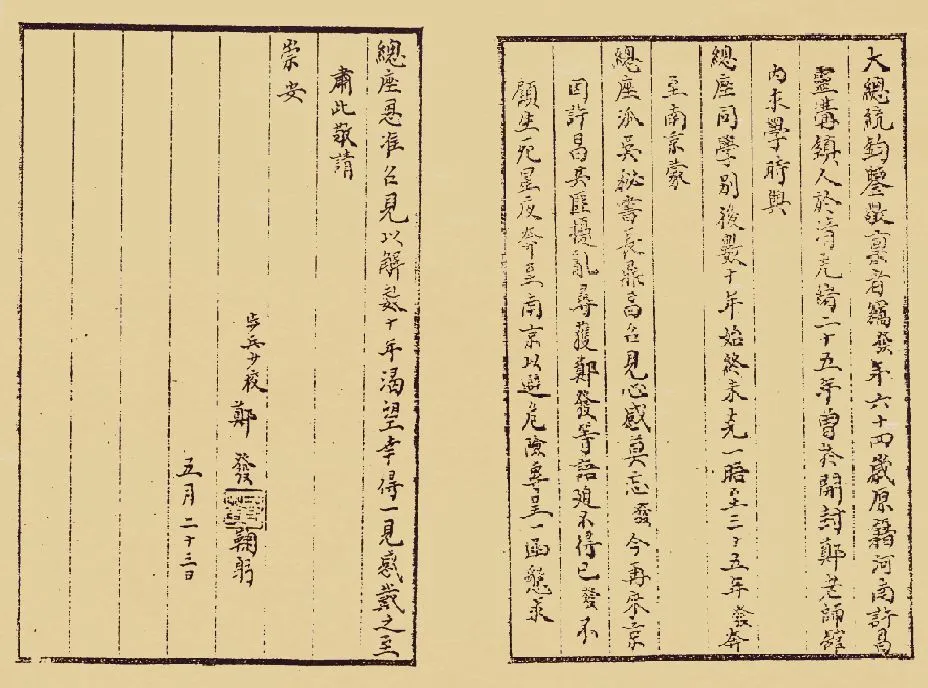 大總統鈞鑒敬稟者竊發年六十四歲原籍河南許昌
靈溝鎮人於清光緒二十五年曾於開封鄭老師館
內求學時與
總座同學別後數十年始終未克一晤至三十五年發奔
至南京蒙
總座派吳秘書長鼎昌召見心感莫忘發今再來京
因許昌共匪擾亂尋獲鄭發等語迫不得已發不
顧生死星夜奔至南京以避危險專呈一函懇求
總座恩准召見以解數十年渴望幸得一見感戴之至
肅此敬請
崇安
步兵少校 鄭 發 鞠躬
五月二十三日